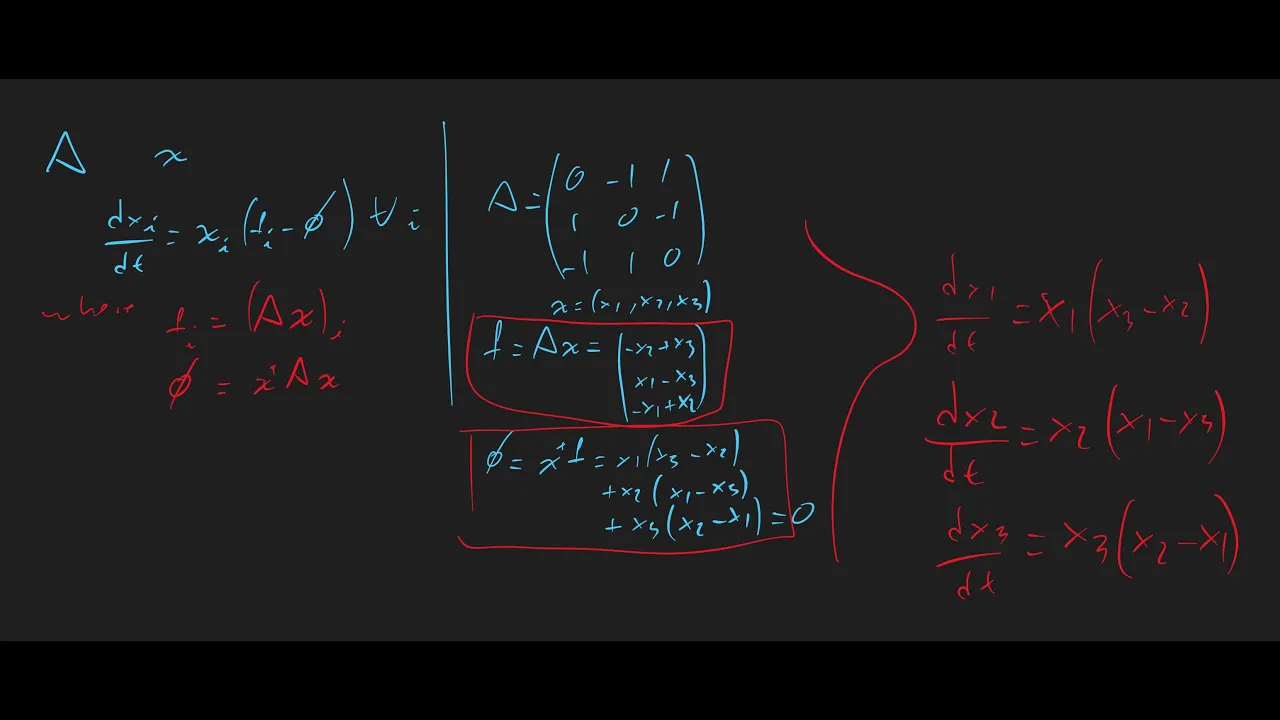 A x
dx_i/dt = x_i (f_i - ϕ) ∀ i
where f_i = (Ax)_i
ϕ = x^T A x
A = (0 -1 1
1 0 -1
-1 1 0)
x = (x1, x2, x3)
f = Ax = (-x2 + x3
x1 - x3
-x1 + x2)
ϕ = x^T f = x1(x3 - x2)
+ x2(x1 - x3)
+ x3(x2 - x1) = 0
dx1/dt = x1(x3 - x2)
dx2/dt = x2(x1 - x3)
dx3/dt = x3(x2 - x1)